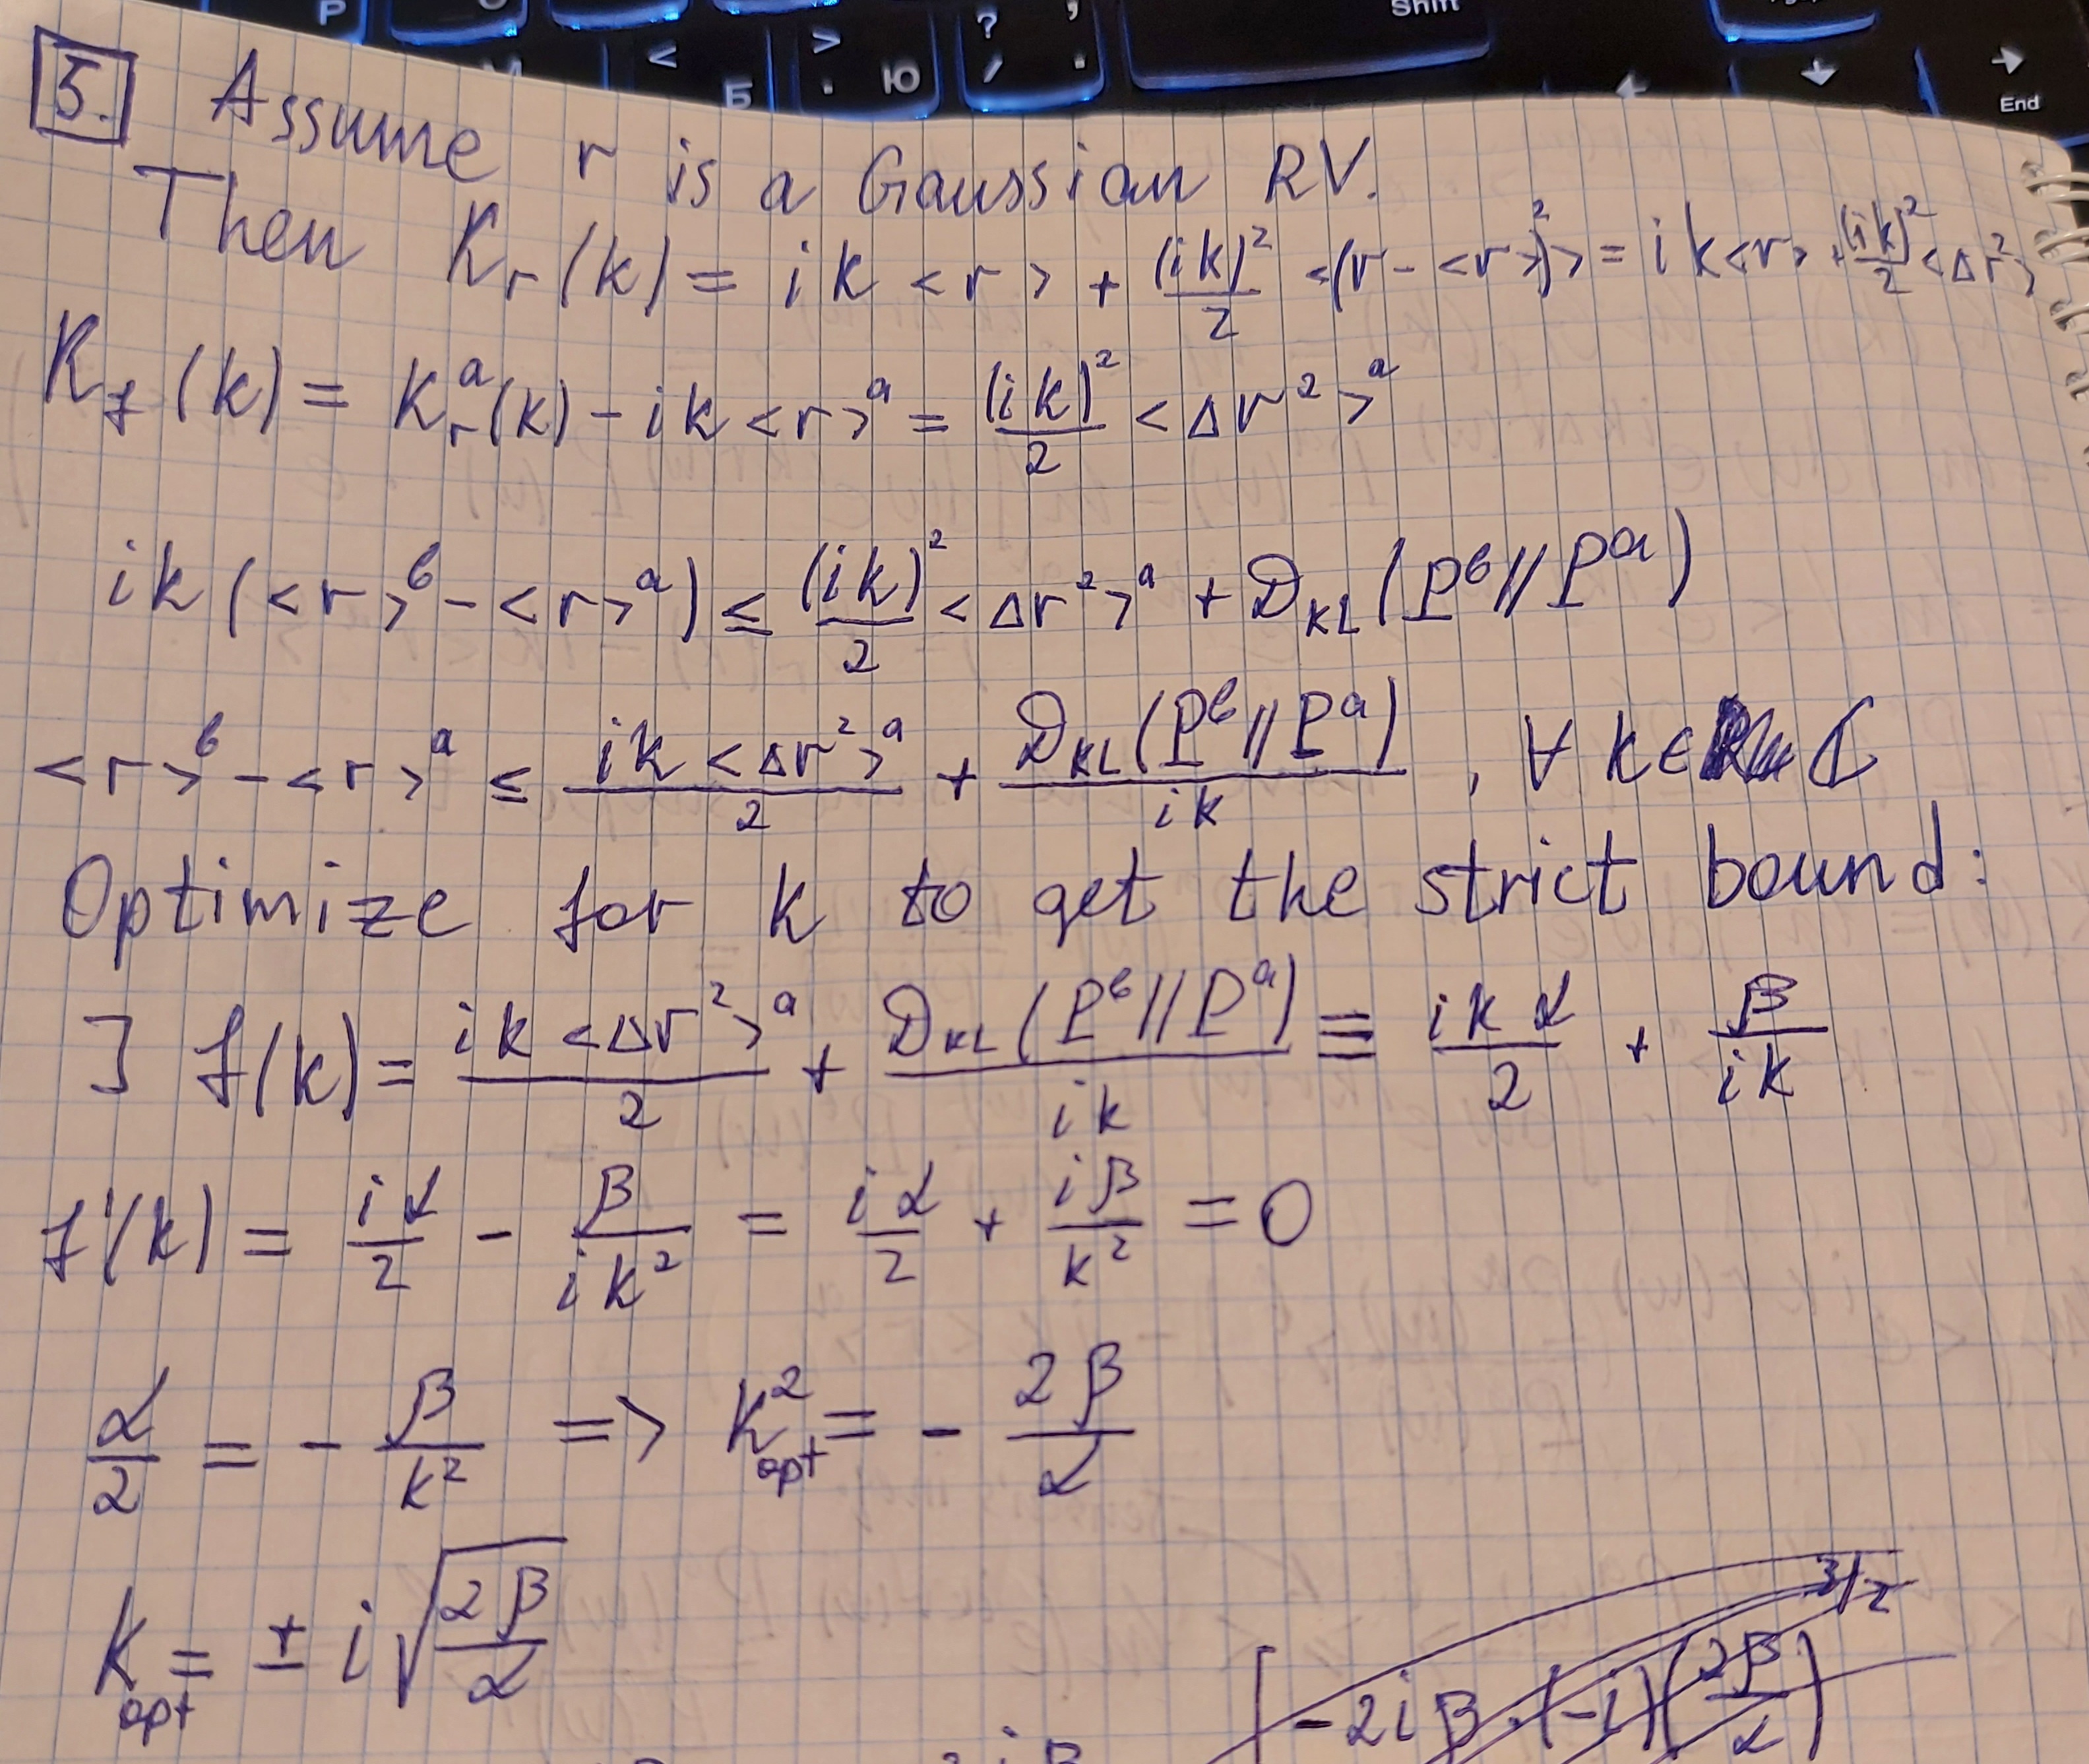 P
Shift
< Б
> . Ю
? / , .
End
5. Assume r is a Gaussian RV.
Then K_r(k) = ik<r> + (ik)²/2 <(r-<r>)²> = ik<r> + (ik)²/2 <Δr²>
K_f(k) = K_r^a(k) - ik<r>^a = (ik)²/2 <Δr²>^a
ik(<r>^b - <r>^a) ≤ (ik)²/2 <Δr²>^a + D_KL(P^b//P^a)
<r>^b - <r>^a ≤ ik<Δr²>^a/2 + D_KL(P^b//P^a)/ik , ∀ k ∈ ℂ
Optimize for k to get the strict bound:
] f(k) = ik<Δr²>^a/2 + D_KL(P^b//P^a)/ik ≡ ikα/2 + β/ik
f'(k) = iα/2 - β/ik² = iα/2 + iβ/k² = 0
α/2 = - β/k² => k²_opt = - 2β/α
k_opt = ± i√(2β/α)
[-2iβ·(-i)(2β/α)^3/2